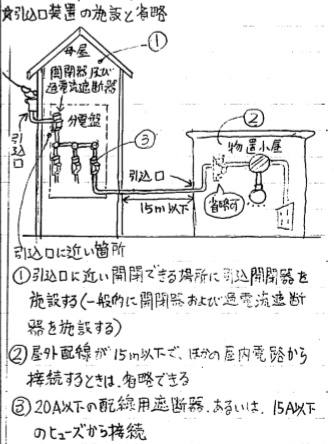 ☆引込口装置の施設と省略
①
母屋
開閉器及び
過電流遮断器
分電盤
②
物置小屋
③
引込口
引込口
省略可
15m以下
引込口に近い箇所
①引込口に近い開閉できる場所に引込開閉器を
施設する(一般的に開閉器および過電流遮断
器を施設する)
②屋外配線が15m以下で、ほかの屋内電路から
接続するときは、省略できる
③20A以下の配線用遮断器、あるいは、15A以下
のヒューズから接続